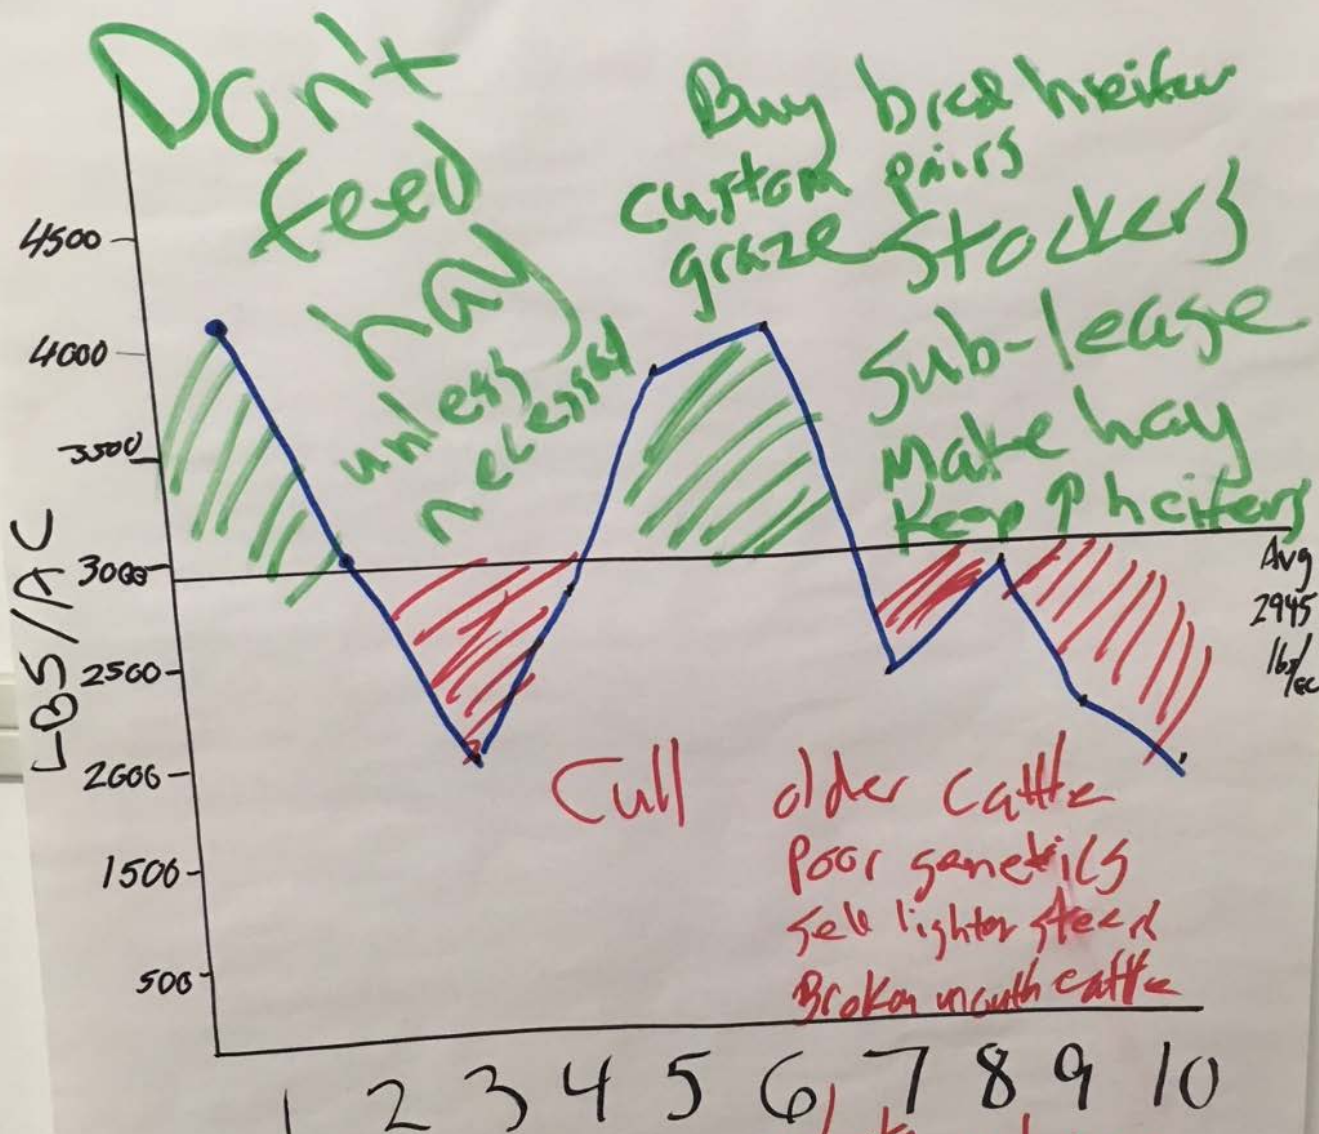 Don't
feed
hay
unless
necessary
Buy bred heifer
custom pairs
graze stockers
Sub-lease
Make hay
Keep ↑ heifers
4500
4000
3500
3000
2500
2000
1500
500
LBS/AC
Avg
2945
lbs/ac
Cull older cattle
Poor genetics
Sell lighter steers
Broken mouth cattle
1 2 3 4 5 6 7 8 9 10